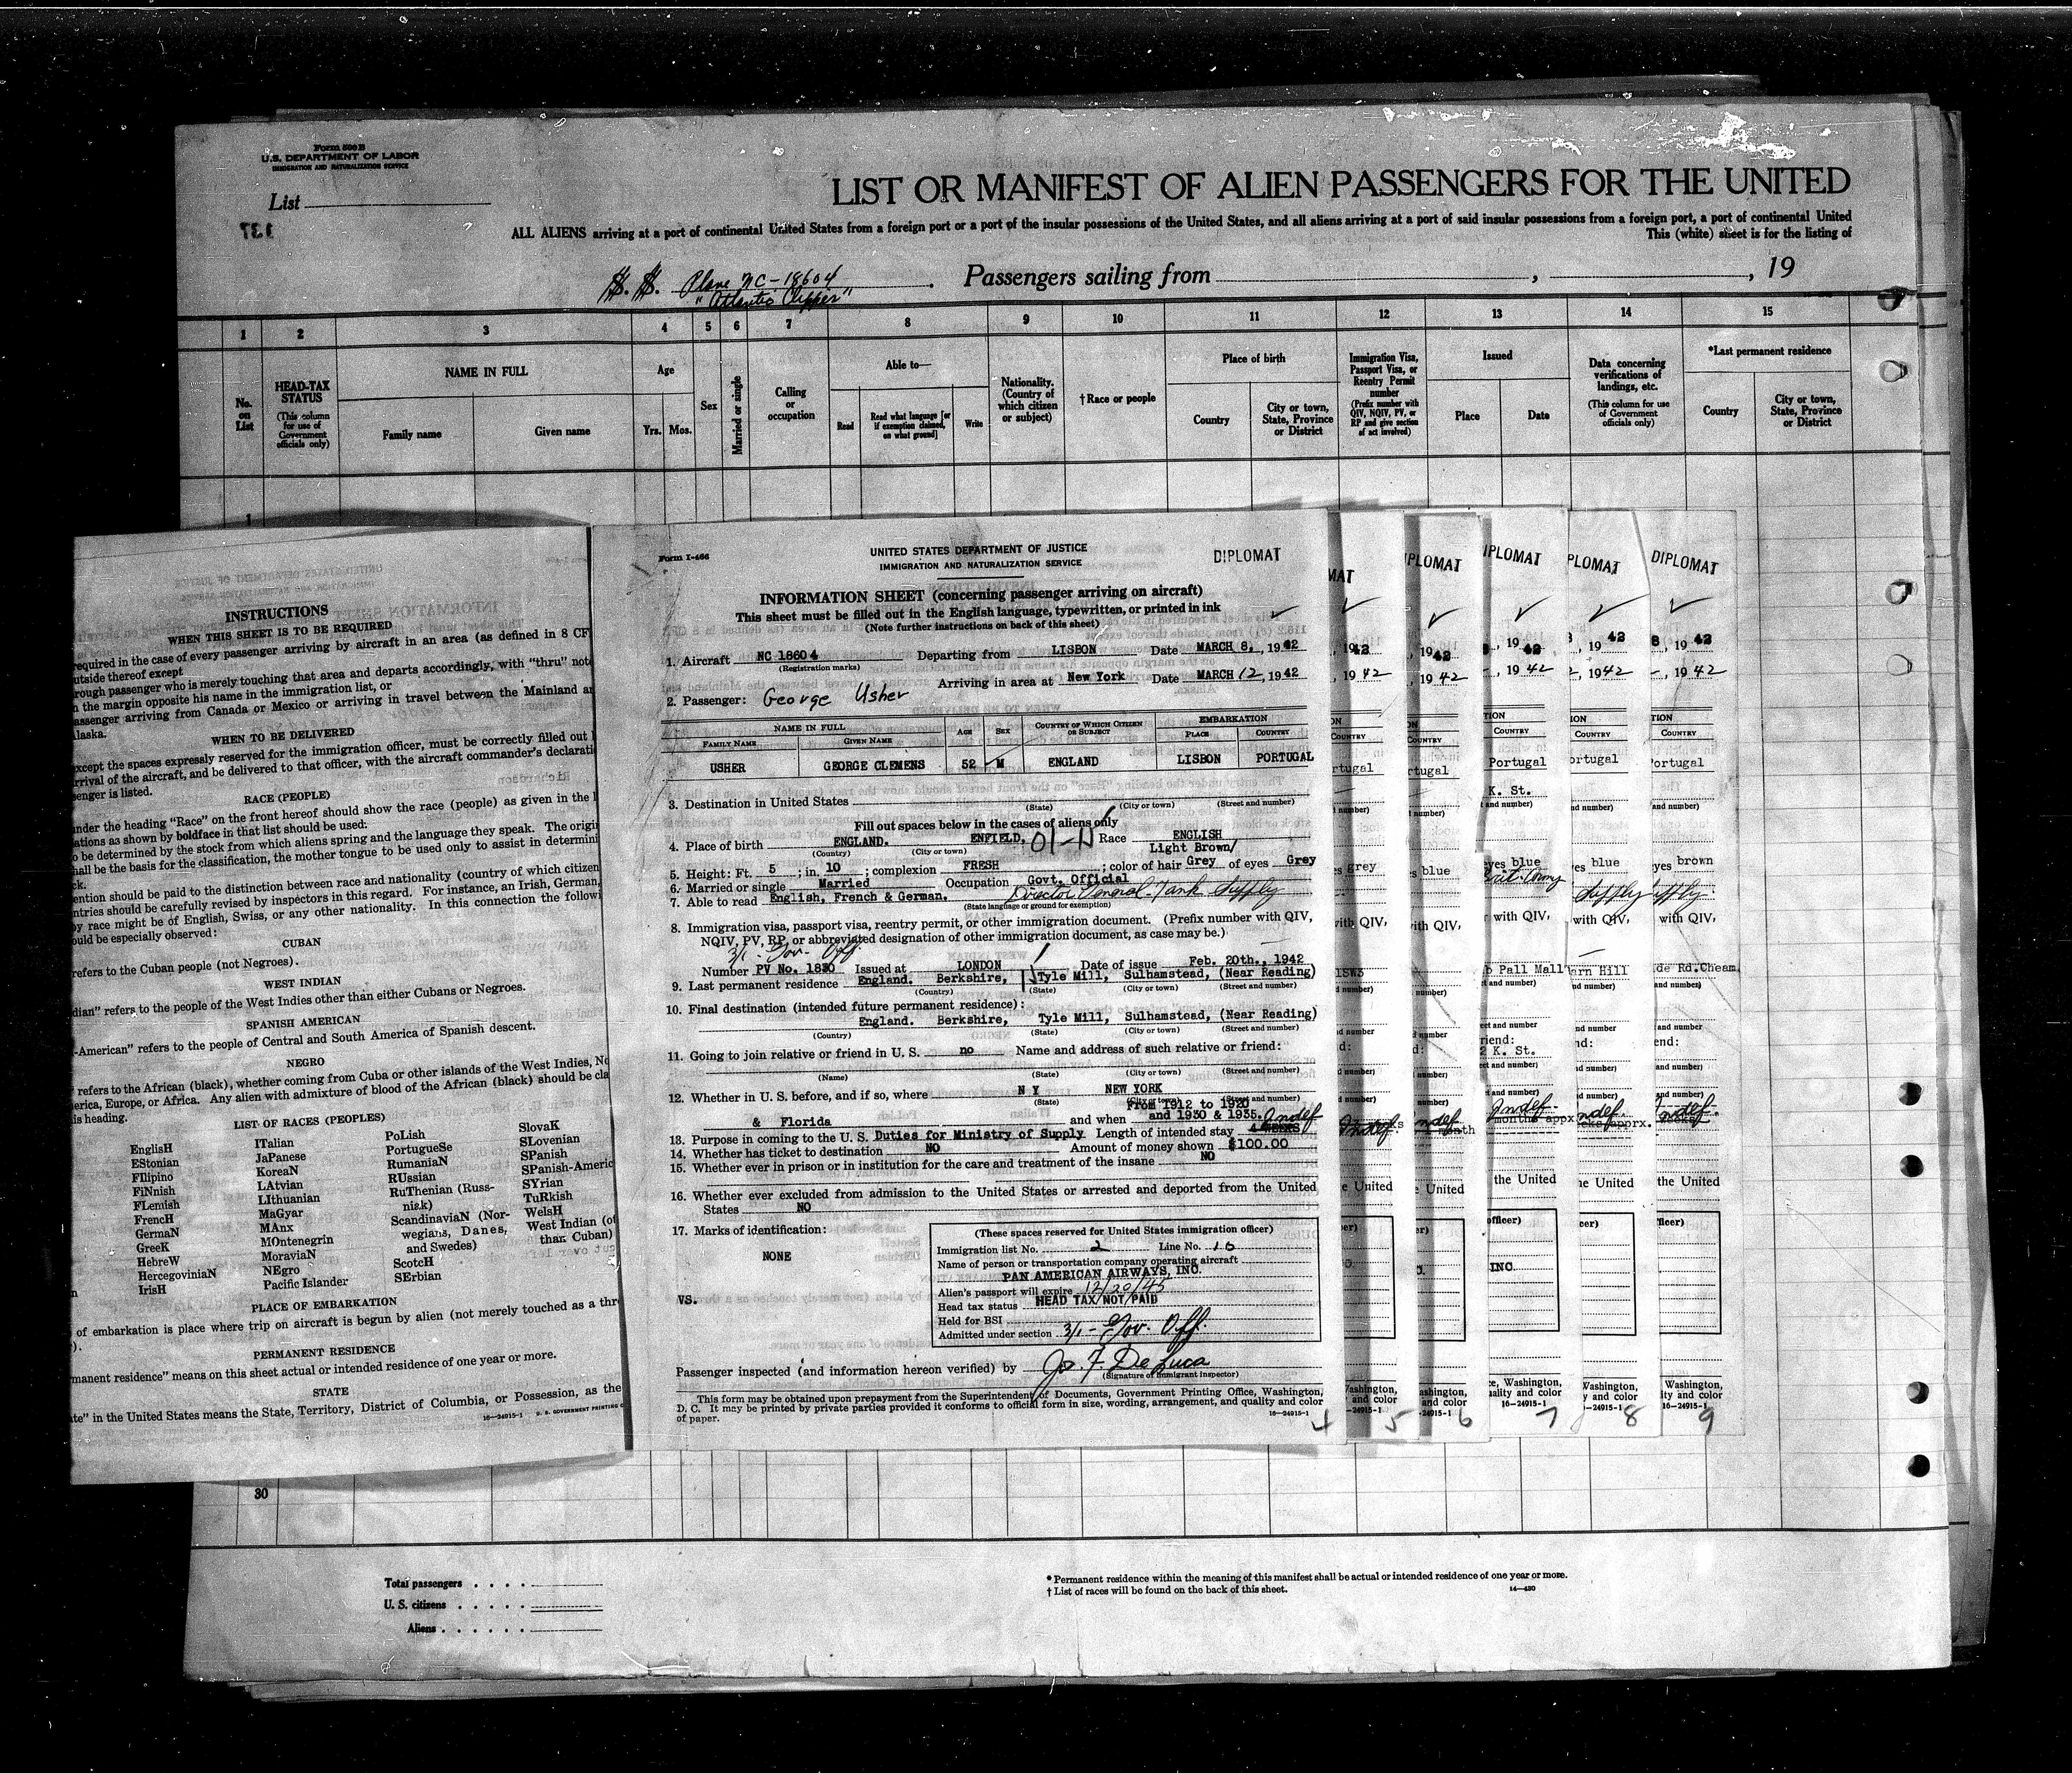 Form 500 B
U.S. DEPARTMENT OF LABOR
IMMIGRATION AND NATURALIZATION SERVICE
List
137
LIST OR MANIFEST OF ALIEN PASSENGERS FOR THE UNITED
ALL ALIENS arriving at a port of continental United States from a foreign port or a port of the insular possessions of the United States, and all aliens arriving at a port of said insular possessions from a foreign port, a port of continental United
This (white) sheet is for the listing of
S. S. Plane NC-18604
"Atlantic Clipper"
Passengers sailing from , , 19
1 2 3 4 5 6 7 8 9 10 11 12 13 14 15
No. on List
HEAD-TAX STATUS
(This column for use of Government officials only)
NAME IN FULL
Family name Given name
Age
Yrs. Mos.
Sex
Married or single
Calling or occupation
Able to—
Read
Read what language [or if exemption claimed, on what ground]
Write
Nationality. (Country of which citizen or subject)
†Race or people
Place of birth
Country
City or town, State, Province or District
Immigration Visa, Passport Visa, or Reentry Permit number
(Prefix number with QIV, NQIV, PV, or RP and give section of act involved)
Issued
Place Date
Data concerning verifications of landings, etc.
(This column for use of Government officials only)
*Last permanent residence
Country
City or town, State, Province or District
1
INSTRUCTIONS
WHEN THIS SHEET IS TO BE REQUIRED
required in the case of every passenger arriving by aircraft in an area (as defined in 8 CF
utside thereof except
rough passenger who is merely touching that area and departs accordingly, with "thru" not
n the margin opposite his name in the immigration list, or
assenger arriving from Canada or Mexico or arriving in travel between the Mainland an
laska.
WHEN TO BE DELIVERED
xcept the spaces expressly reserved for the immigration officer, must be correctly filled out
rrival of the aircraft, and be delivered to that officer, with the aircraft commander's declarati
senger is listed.
RACE (PEOPLE)
nder the heading "Race" on the front hereof should show the race (people) as given in the l
ations as shown by boldface in that list should be used:
o be determined by the stock from which aliens spring and the language they speak. The origi
hall be the basis for the classification, the mother tongue to be used only to assist in determini
ck.
ention should be paid to the distinction between race and nationality (country of which citizen
ntries should be carefully revised by inspectors in this regard. For instance, an Irish, German,
by race might be of English, Swiss, or any other nationality. In this connection the followi
ould be especially observed:
CUBAN
refers to the Cuban people (not Negroes).
WEST INDIAN
dian" refers to the people of the West Indies other than either Cubans or Negroes.
SPANISH AMERICAN
-American" refers to the people of Central and South America of Spanish descent.
NEGRO
" refers to the African (black), whether coming from Cuba or other islands of the West Indies, No
erica, Europe, or Africa. Any alien with admixture of blood of the African (black) should be cla
is heading.
LIST OF RACES (PEOPLES)
EnglisH
EStonian
FIlipino
FiNnish
FLemish
FrencH
GermaN
GreeK
HebreW
HercegoviniaN
IrisH
ITalian
JaPanese
KoreaN
LAtvian
LIthuanian
MaGyar
MAnx
MOntenegrin
MoraviaN
NEgro
Pacific Islander
PoLish
PortugueSe
RumaniaN
RUssian
RuThenian (Russniak)
ScandinaviaN (Norwegians, Danes, and Swedes)
ScotcH
SErbian
SlovaK
SLovenian
SPanish
SPanish-Americ
SYrian
TuRkish
WelsH
West Indian (ot
than Cuban)
PLACE OF EMBARKATION
of embarkation is place where trip on aircraft is begun by alien (not merely touched as a thr
).
PERMANENT RESIDENCE
manent residence" means on this sheet actual or intended residence of one year or more.
STATE
te" in the United States means the State, Territory, District of Columbia, or Possession, as the
16—24915-1 U. S. GOVERNMENT PRINTING
Form I-466
UNITED STATES DEPARTMENT OF JUSTICE
IMMIGRATION AND NATURALIZATION SERVICE
DIPLOMAT
INFORMATION SHEET (concerning passenger arriving on aircraft)
This sheet must be filled out in the English language, typewritten, or printed in ink
(Note further instructions on back of this sheet)
1. Aircraft NC 18604 Departing from LISBON Date MARCH 8, 1942
(Registration marks)
Arriving in area at New York Date MARCH 12, 1942
2. Passenger: George Usher
NAME IN FULL
FAMILY NAME GIVEN NAME AGE SEX COUNTRY OF WHICH CITIZEN OR SUBJECT EMBARKATION
PLACE COUNTRY
USHER GEORGE CLEMENS 52 M ENGLAND LISBON PORTUGAL
3. Destination in United States
(State) (City or town) (Street and number)
Fill out spaces below in the cases of aliens only
4. Place of birth ENGLAND. ENFIELD. Race ENGLISH
(Country) (City or town) Light Brown/
5. Height: Ft. 5; in. 10; complexion FRESH; color of hair Grey of eyes Grey
6. Married or single Married Occupation Govt. Official
7. Able to read English, French & German. Director General-Tank Supply
(State language or ground for exemption)
8. Immigration visa, passport visa, reentry permit, or other immigration document. (Prefix number with QIV,
NQIV, PV, RP, or abbreviated designation of other immigration document, as case may be.)
3/1 - Gov. Off.
Number PV No. 1830 Issued at LONDON Date of issue Feb. 20th., 1942
9. Last permanent residence England. Berkshire, Tyle Mill, Sulhamstead, (Near Reading)
(Country) (State) (City or town) (Street and number)
10. Final destination (intended future permanent residence):
England. Berkshire, Tyle Mill, Sulhamstead, (Near Reading)
(Country) (State) (City or town) (Street and number)
11. Going to join relative or friend in U. S. no Name and address of such relative or friend:
(Name) (State) (City or town) (Street and number)
12. Whether in U. S. before, and if so, where N Y NEW YORK
(State) (City or town) (Street and number)
From 1912 to 1920
& Florida and when and 1930 & 1935. Indef
13. Purpose in coming to the U. S. Duties for Ministry of Supply Length of intended stay 4 weeks
14. Whether has ticket to destination NO Amount of money shown $100.00
15. Whether ever in prison or in institution for the care and treatment of the insane NO
16. Whether ever excluded from admission to the United States or arrested and deported from the United
States NO
17. Marks of identification:
NONE
VS.
(These spaces reserved for United States immigration officer)
Immigration list No. 2 Line No. 10
Name of person or transportation company operating aircraft
PAN AMERICAN AIRWAYS, INC.
Alien's passport will expire 12/20/45
Head tax status HEAD TAX/NOT/PAID
Held for BSI
Admitted under section 3/1 - Gov. Off.
Passenger inspected (and information hereon verified) by Jo. F. De Luca
(Signature of immigrant inspector)
This form may be obtained upon prepayment from the Superintendent of Documents, Government Printing Office, Washington,
D. C. It may be printed by private parties provided it conforms to official form in size, wording, arrangement, and quality and color
of paper.
16—24915-1
4 5 6 7 8 9
MAT
IPLOMAT
IPLOMAT
PLOMAT
DIPLOMAT
, 1942
, 1942
, 1942
, 1942
, 1942
rtugal
rtugal
Portugal
ortugal
ortugal
K. St.
es grey
blue
eyes blue
yes blue
yes brown
Supply
with QIV,
b Pall Mall
arn Hill
de Rd.Cheam
2 K. St.
Indef.
e United
e United
the United
he United
the United
INC.
30
Total passengers
U. S. citizens
Aliens
* Permanent residence within the meaning of this manifest shall be actual or intended residence of one year or more.
† List of races will be found on the back of this sheet.
14—430